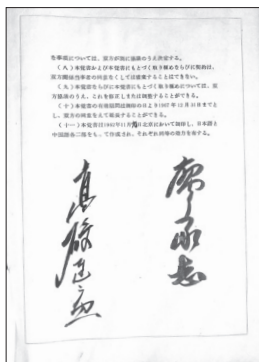 を事項については、双方が別に協議のうえ決定する。
（八）本覚書および本覚書にもとづく取り極めならびに契約は、
双方関係当事者の同意をなくしては廃棄することはできない。
（九）本覚書ならびに本覚書にもとづく取り極めについては、双
方協議のうえ、これを修正しまたは調整することができる。
（十）本覚書の有効期間は調印の日より1967年12月31日までと
し、双方の同意をえて延長することができる。
（十一）本覚書は1962年11月9日北京において調印し、日本語と
中国語各二部をもって作成され、それぞれ同等の効力を有する。
高碕達之助
廖承志